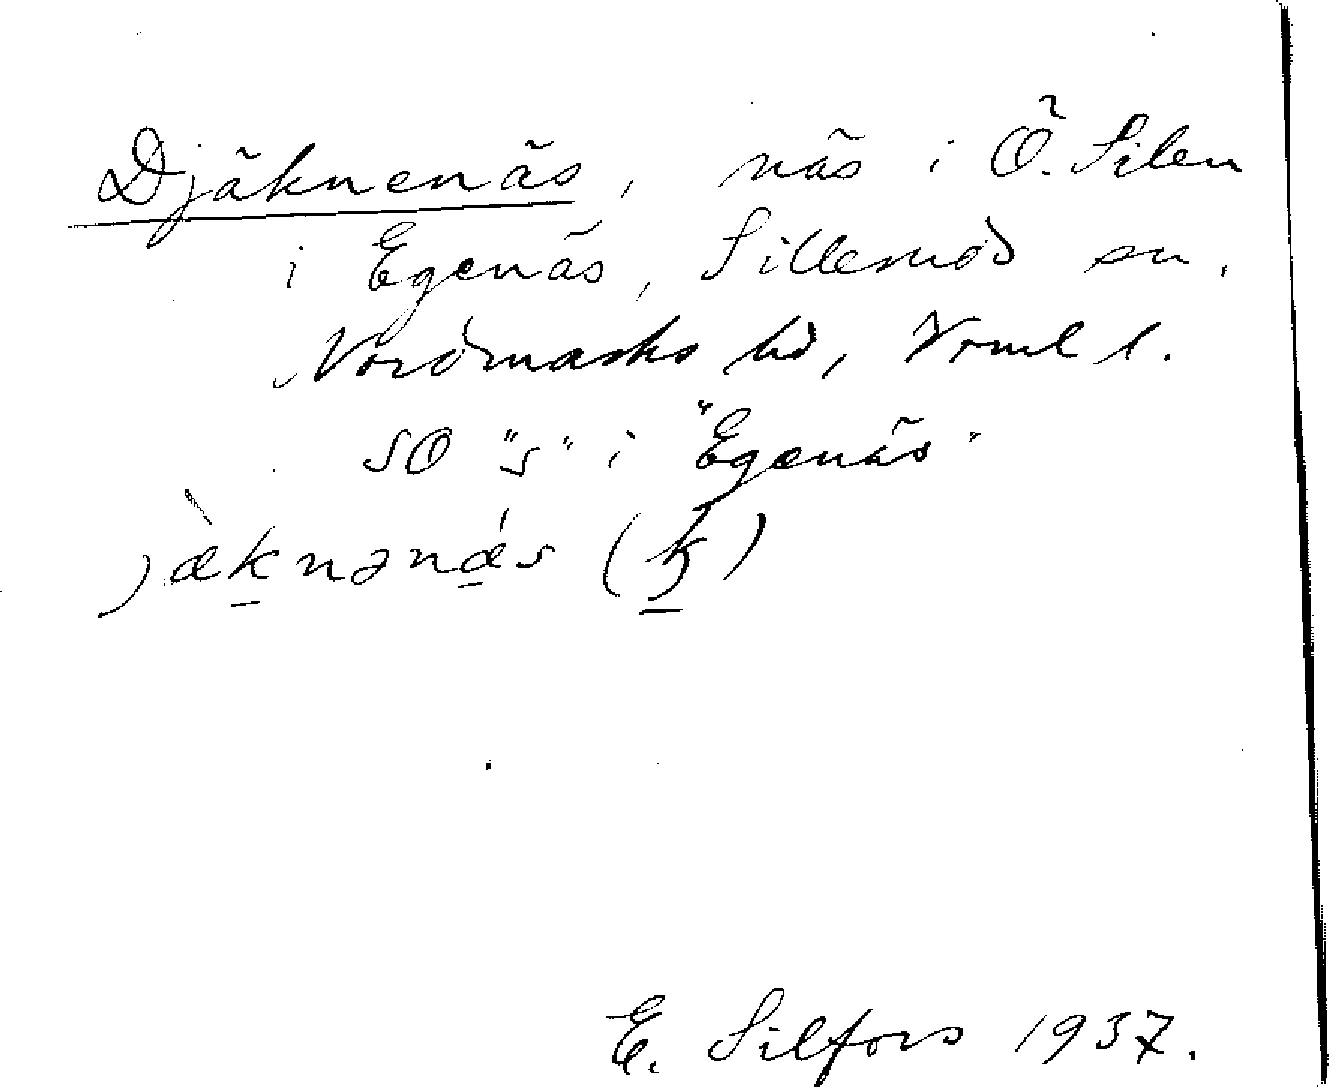 Djäknenäs, näs i Ö. Silen
i Egenäs, Sillerud sn,
Nordmarks hd, Vrml l.
SO "s" i "Egenäs"
jæ̀knənǽs (k)
E. Silfors 1937.